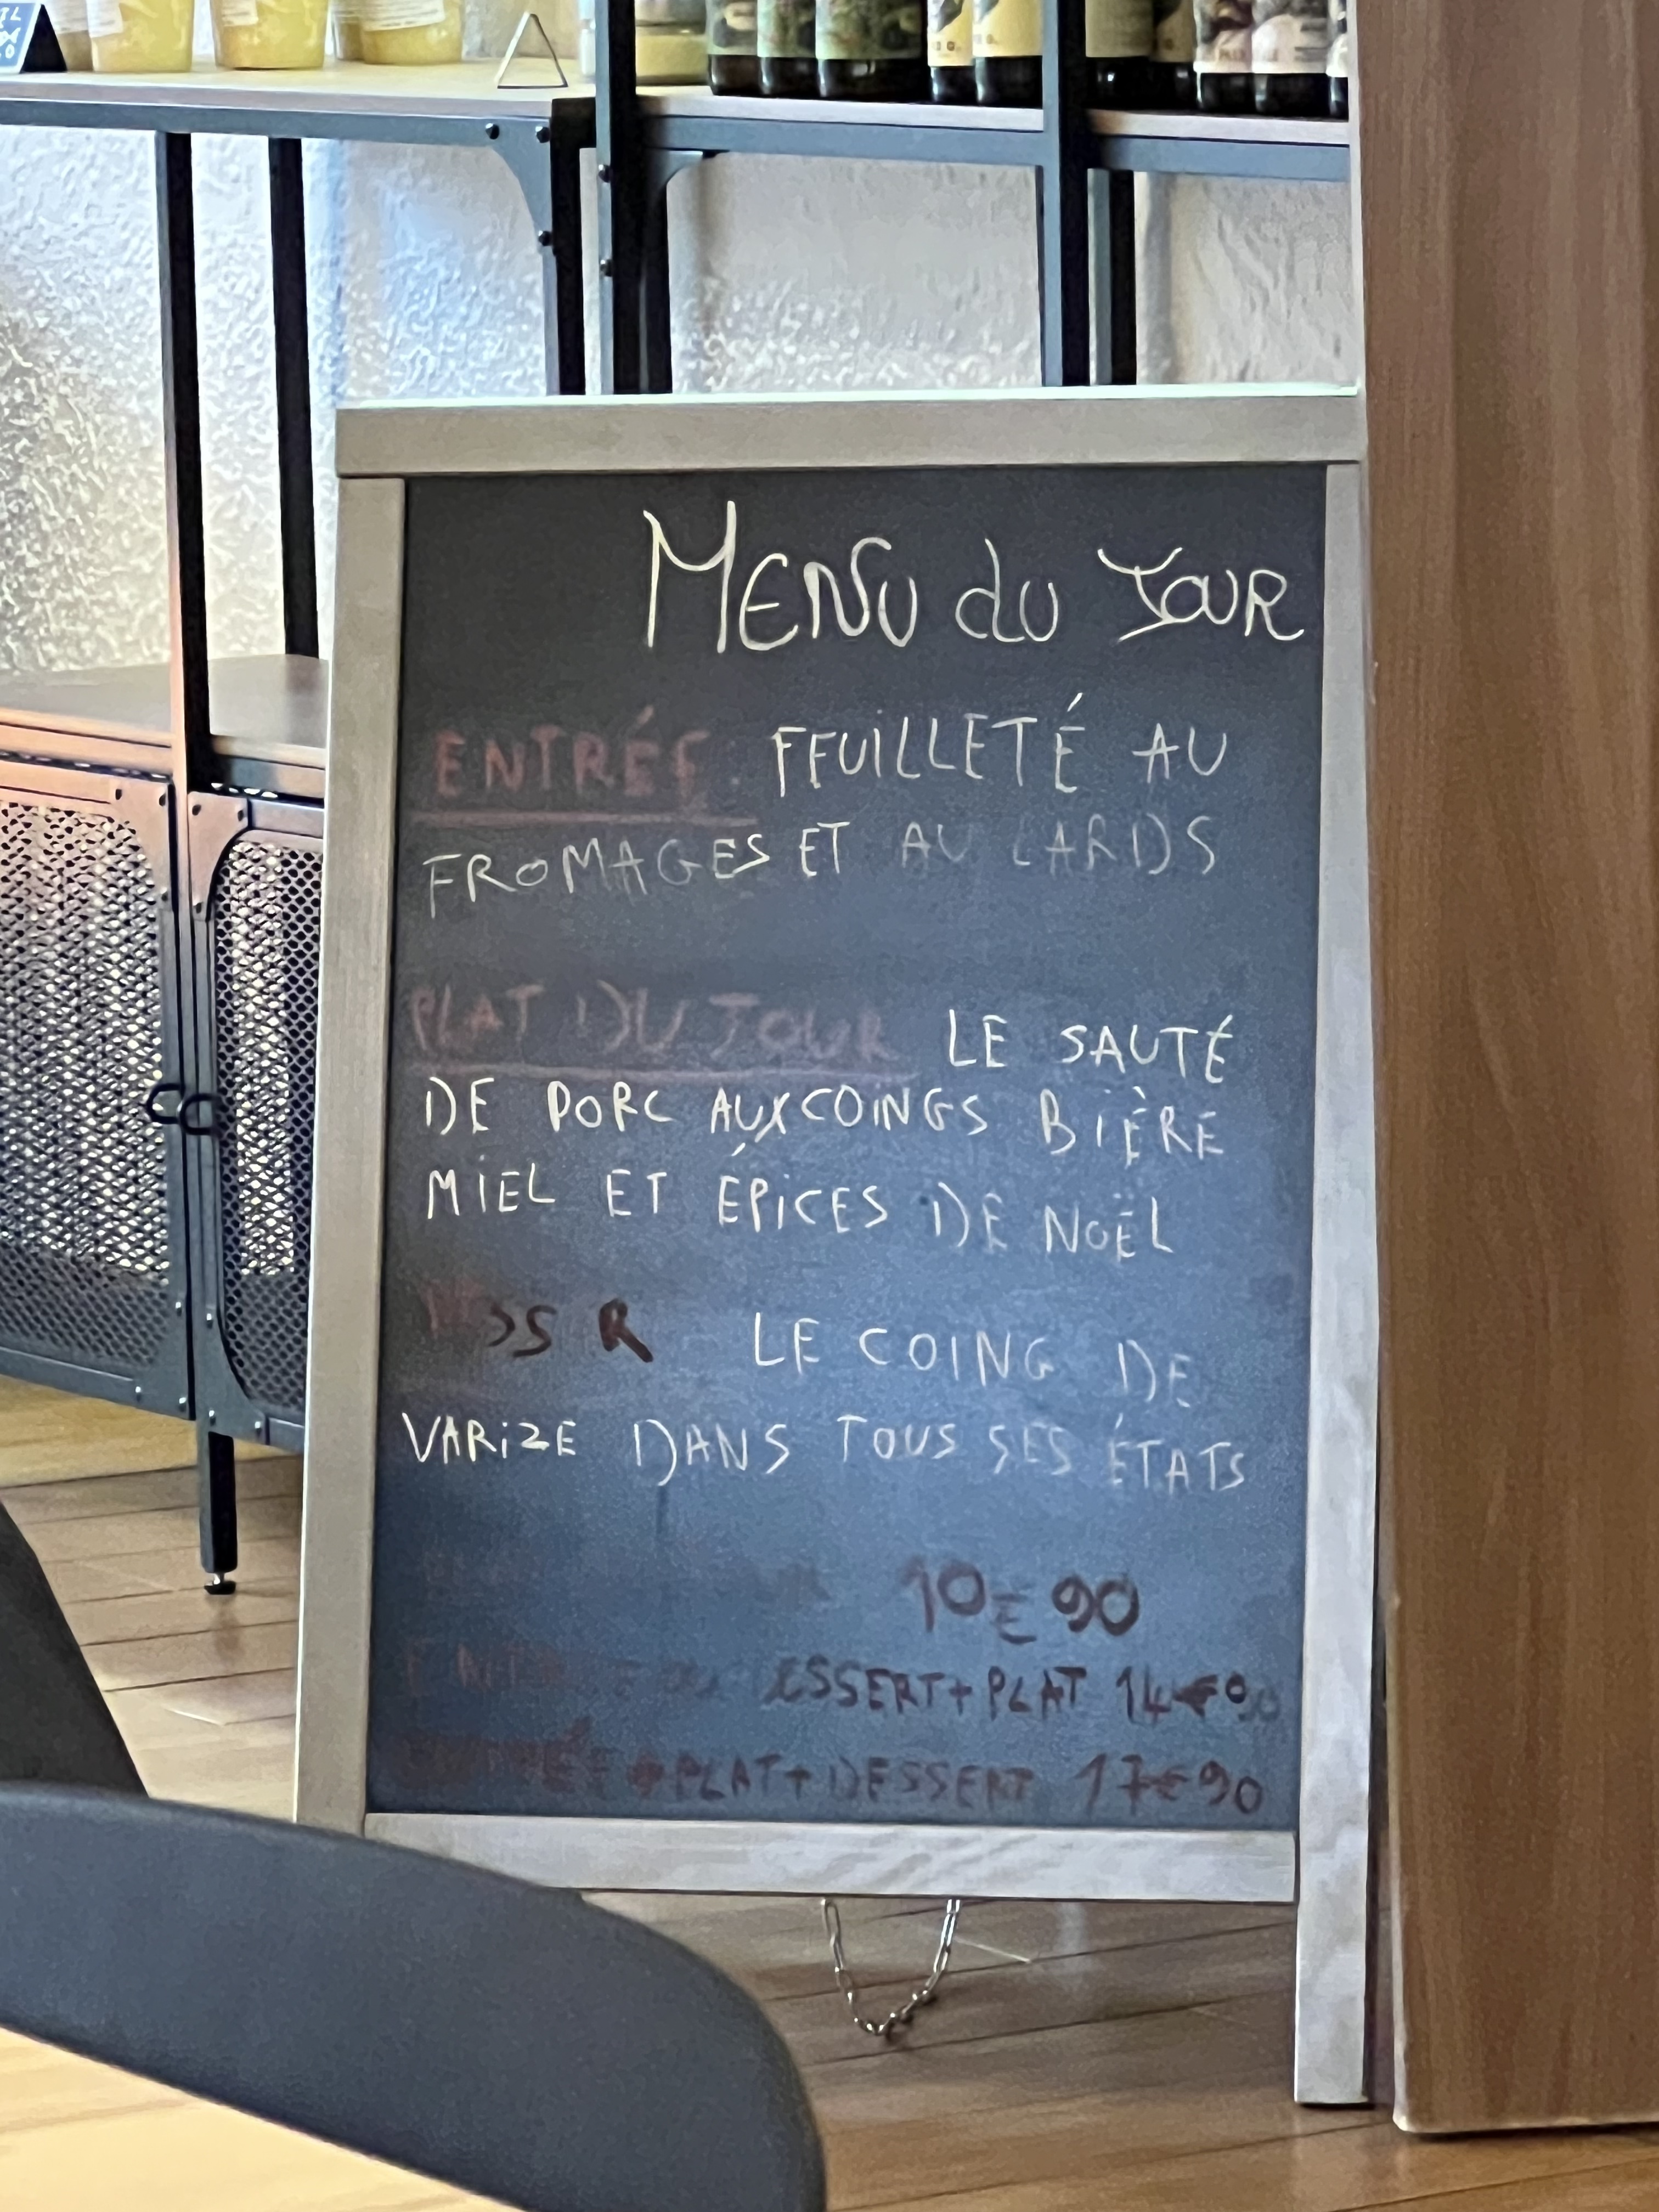 MENU du JOUR
ENTRÉE : FEUILLETÉ AU
FROMAGES ET AU LARDS
PLAT DU JOUR LE SAUTÉ
DE PORC AUX COINGS BIÈRE
MIEL ET ÉPICES DE NOËL
LE COING DE
VARIZE DANS TOUS SES ÉTATS
10€90
DESSERT + PLAT 14€90
ENTRÉE + PLAT + DESSERT 17€90